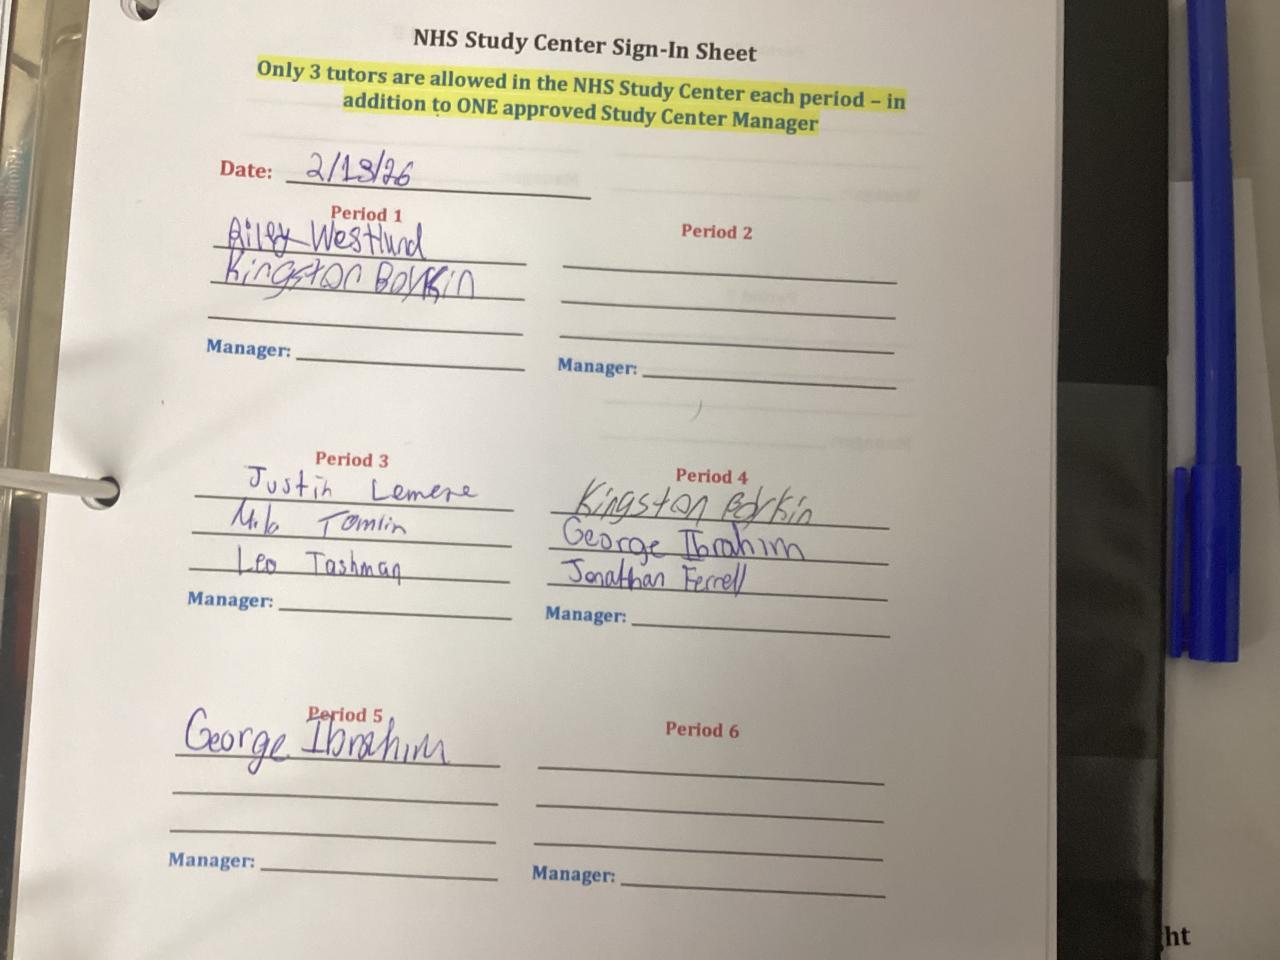 NHS Study Center Sign-In Sheet
Only 3 tutors are allowed in the NHS Study Center each period – in
addition to ONE approved Study Center Manager
Date: 2/13/26
Period 1
Riley Westlund
Kingston Boykin
Manager:
Period 2
Manager:
Period 3
Justin Lemere
Tomlin
Leo Tashman
Manager:
Period 4
Kingston Boykin
George Ibrahim
Jonathan Ferrell
Manager:
Period 5
George Ibrahim
Manager:
Period 6
Manager:
ht